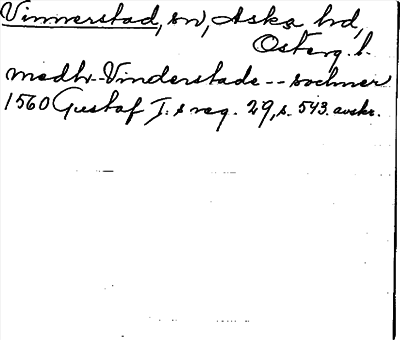 Vinnerstad, sn, Aska hd,
Österg. l.
medh Vinderstade -- sochner
1560 Gustaf I:s reg. 29, s. 543. avskr.